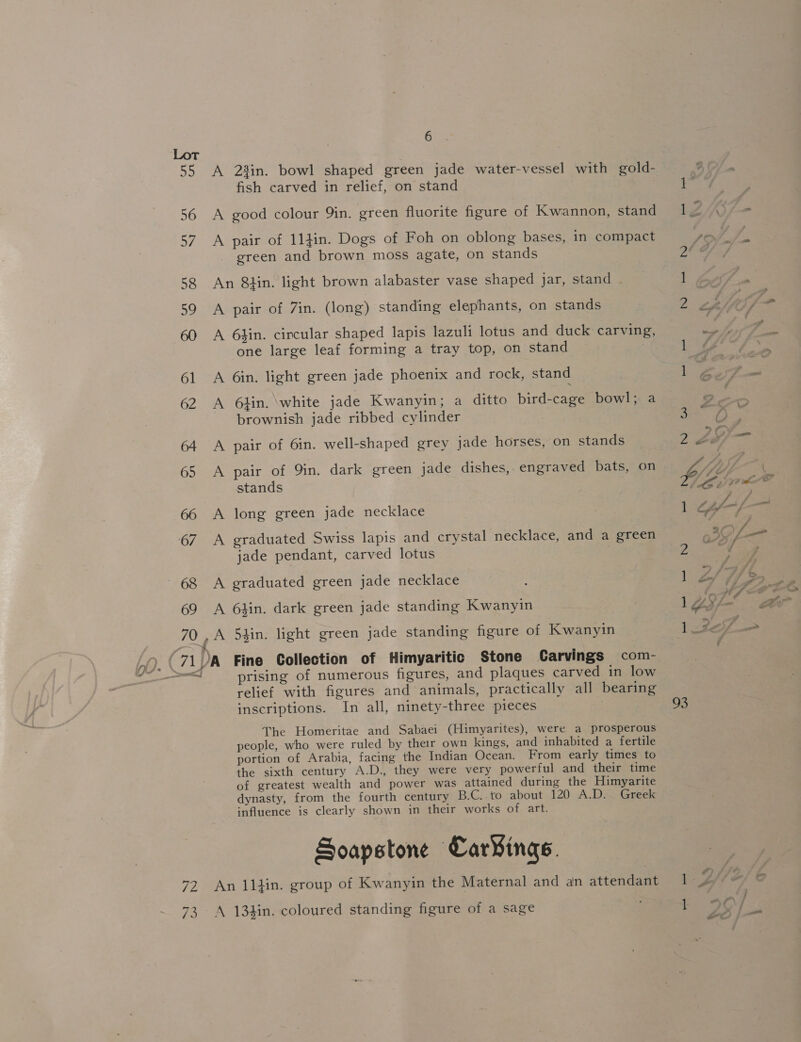 6
Lot
55 A 2¾in. bowl shaped green jade water-vessel with gold-
fish carved in relief, on stand 1
56 A good colour 9in. green fluorite figure of Kwannon, stand 1
57 A pair of 11¼in. Dogs of Foh on oblong bases, in compact
green and brown moss agate, on stands 2
58 An 8¼in. light brown alabaster vase shaped jar, stand 1
59 A pair of 7in. (long) standing elephants, on stands 2
60 A 6½in. circular shaped lapis lazuli lotus and duck carving,
one large leaf forming a tray top, on stand 1
61 A 6in. light green jade phoenix and rock, stand 1
62 A 6¼in. white jade Kwanyin; a ditto bird-cage bowl; a
brownish jade ribbed cylinder 3
64 A pair of 6in. well-shaped grey jade horses, on stands 2
65 A pair of 9in. dark green jade dishes, engraved bats, on
stands 2
66 A long green jade necklace 1
67 A graduated Swiss lapis and crystal necklace, and a green
jade pendant, carved lotus 2
68 A graduated green jade necklace 1
69 A 6½in. dark green jade standing Kwanyin 1
70 A 5½in. light green jade standing figure of Kwanyin 1
71 A Fine Collection of Himyaritic Stone Carvings com-
prising of numerous figures, and plaques carved in low
relief with figures and animals, practically all bearing
inscriptions. In all, ninety-three pieces 93
The Homeritae and Sabaei (Himyarites), were a prosperous
people, who were ruled by their own kings, and inhabited a fertile
portion of Arabia, facing the Indian Ocean. From early times to
the sixth century A.D., they were very powerful and their time
of greatest wealth and power was attained during the Himyarite
dynasty, from the fourth century B.C. to about 120 A.D. Greek
influence is clearly shown in their works of art.
Soapstone Carvings.
72 An 11¼in. group of Kwanyin the Maternal and an attendant 1
73 A 13½in. coloured standing figure of a sage 1